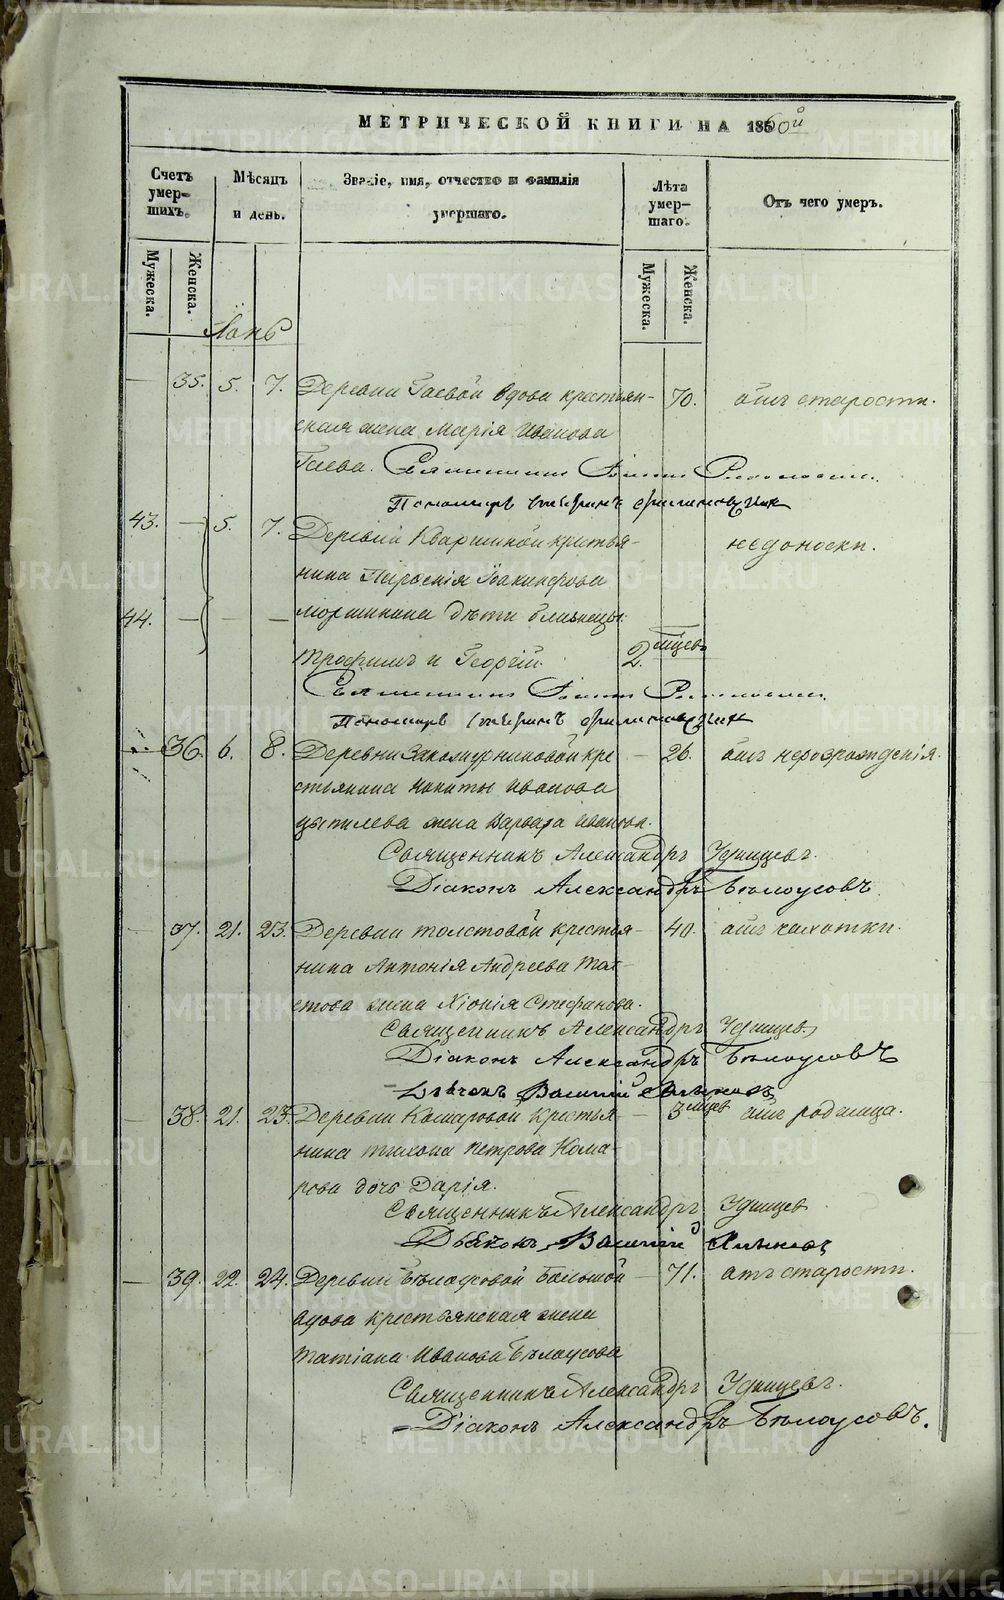 МЕТРИЧЕСКОЙ КНИГИ НА 1860й
Счетъ умер-шихъ.
Мѣсяцъ и день.
Званіе, имя, отчество и фамилія умершаго.
Лѣта умер-шаго.
Отъ чего умеръ.
Мужеска.
Женска.
Мужеска.
Женска.
Іюнь
— 35. 5. 7. Деревни Гаевой вдова крестьян- 70. отъ старости.
ская жена Марія Иванова
Гаева. Священникъ
Пономарь
43. — 5. 7. Деревни Кваршиной крестья- недоноски.
нина Іоакинфова
44. — — — Моршинина дѣти близнецы
Трофимъ и Георгій. 2. мѣсев
Священникъ
Пономарь
— 36. 6. 8. Деревни кре — 26. отъ неразрожденія.
стьянина Никиты Иванова
Цыпилева жена Варвара Иванова.
Священникъ Александръ Удинцевъ.
Діаконъ Александръ Бѣлоусовъ
— 37. 21. 23. Деревни Толстовой крестья- — 40. отъ чахотки.
нина Антонія Андреева Тол-
стова жена Хіонія Стефанова.
Священникъ Александръ Удинцев
Діаконъ Александръ Бѣлоусовъ
Дьячокъ Василій
— 38. 21. 23. Деревни Комаровой Крестья- — 3 мѣсев отъ родимца.
нина Тихона Петрова Кома
рова дочь Дарія.
Священникъ Александръ Удинцев
Дьячокъ Василій
— 39. 22. 24. Деревни Бѣлоусовой Большой — 71. отъ старости.
вдова крестьянская жена
Татіана Иванова Бѣлоусова
Священникъ Александръ Удинцевъ.
Діаконъ Александръ Бѣлоусовъ.
METRIKI.GASO-URAL.RU